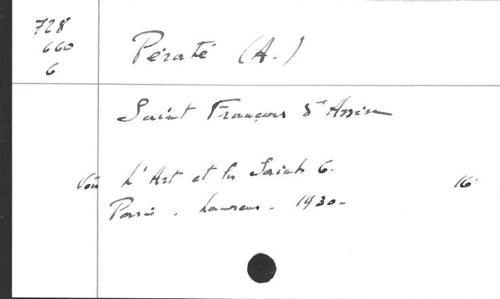 728
660
6
Pératé (A.)
Saint François d'Assise
Voir L'Art et les Saints 6. 16°
Paris. Laurens. 1930-